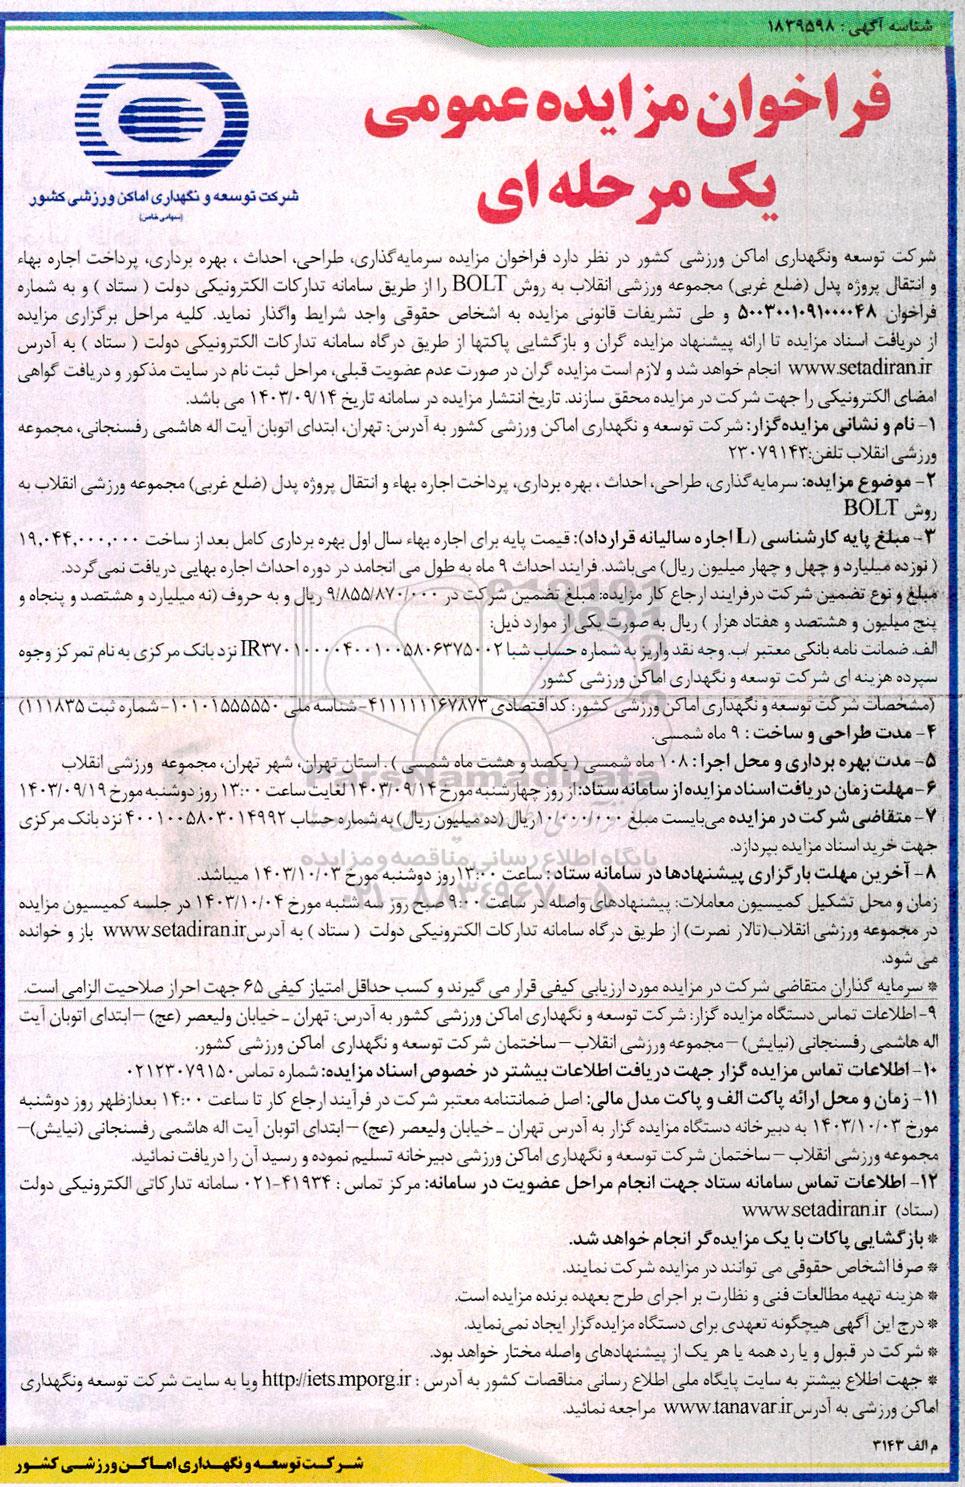 شناسه آگهی: ۱۸۳۹۵۹۸
فراخوان مزایده عمومی
یک مرحله ای
شرکت توسعه و نگهداری اماکن ورزشی کشور
(سهامی خاص)
شرکت توسعه ونگهداری اماکن ورزشی کشور در نظر دارد فراخوان مزایده سرمایه‌گذاری، طراحی، احداث ، بهره برداری، پرداخت اجاره بهاء
و انتقال پروژه پدل (ضلع غربی) مجموعه ورزشی انقلاب به روش BOLT را از طریق سامانه تدارکات الکترونیکی دولت ( ستاد ) و به شماره
فراخوان ۵۰۰۳۰۰۱۰۹۱۰۰۰۰۴۸ و طی تشریفات قانونی مزایده به اشخاص حقوقی واجد شرایط واگذار نماید. کلیه مراحل برگزاری مزایده
از دریافت اسناد مزایده تا ارائه پیشنهاد مزایده گران و بازگشایی پاکتها از طریق درگاه سامانه تدارکات الکترونیکی دولت ( ستاد ) به آدرس
www.setadiran.ir انجام خواهد شد و لازم است مزایده گران در صورت عدم عضویت قبلی، مراحل ثبت نام در سایت مذکور و دریافت گواهی
امضای الکترونیکی را جهت شرکت در مزایده محقق سازند. تاریخ انتشار مزایده در سامانه تاریخ ۱۴۰۳/۰۹/۱۴ می باشد.
۱- نام و نشانی مزایده‌گزار: شرکت توسعه و نگهداری اماکن ورزشی کشور به آدرس: تهران، ابتدای اتوبان آیت اله هاشمی رفسنجانی، مجموعه
ورزشی انقلاب تلفن:۲۳۰۷۹۱۴۳
۲- موضوع مزایده: سرمایه گذاری، طراحی، احداث ، بهره برداری، پرداخت اجاره بهاء و انتقال پروژه پدل (ضلع غربی) مجموعه ورزشی انقلاب به
روش BOLT
۳- مبلغ پایه کارشناسی (L اجاره سالیانه قرارداد): قیمت پایه برای اجاره بهاء سال اول بهره برداری کامل بعد از ساخت ۱۹,۰۴۴,۰۰۰,۰۰۰
( نوزده میلیارد و چهل و چهار میلیون ریال) می‌باشد. فرایند احداث ۹ ماه به طول می انجامد در دوره احداث اجاره بهایی دریافت نمی گردد.
مبلغ و نوع تضمین شرکت درفرایند ارجاع کار مزایده: مبلغ تضمین شرکت در ۹/۸۵۵/۸۷۰/۰۰۰ ریال و به حروف (نه میلیارد و هشتصد و پنجاه و
پنج میلیون و هشتصد و هفتاد هزار ) ریال به صورت یکی از موارد ذیل:
الف. ضمانت نامه بانکی معتبر /ب. وجه نقد واریز به شماره حساب شبا IR۳۷۰۱۰۰۰۰۴۰۰۱۰۰۵۸۰۶۳۷۵۰۰۲ نزد بانک مرکزی به نام تمرکز وجوه
سپرده هزینه ای شرکت توسعه و نگهداری اماکن ورزشی کشور
(مشخصات شرکت توسعه و نگهداری اماکن ورزشی کشور: کد اقتصادی ۴۱۱۱۱۱۱۶۷۸۷۳-شناسه ملی ۱۰۱۰۱۵۵۵۵۵۰-شماره ثبت ۱۱۱۸۳۵)
۴- مدت طراحی و ساخت : ۹ ماه شمسی.
۵- مدت بهره برداری و محل اجرا : ۱۰۸ ماه شمسی ( یکصد و هشت ماه شمسی ) . استان تهران، شهر تهران، مجموعه ورزشی انقلاب
۶- مهلت زمان دریافت اسناد مزایده از سامانه ستاد: از روز چهارشنبه مورخ ۱۴۰۳/۰۹/۱۴ لغایت ساعت ۱۳:۰۰ روز دوشنبه مورخ ۱۴۰۳/۰۹/۱۹
۷- متقاضی شرکت در مزایده می‌بایست مبلغ ۱۰/۰۰۰/۰۰۰ریال (ده میلیون ریال) به شماره حساب ۴۰۰۱۰۰۵۸۰۳۰۱۴۹۹۲ نزد بانک مرکزی
جهت خرید اسناد مزایده بپردازد.
۸- آخرین مهلت بارگزاری پیشنهادها در سامانه ستاد : ساعت ۱۳:۰۰روز دوشنبه مورخ ۱۴۰۳/۱۰/۰۳ میباشد.
زمان و محل تشکیل کمیسیون معاملات: پیشنهادهای واصله در ساعت ۹:۰۰ صبح روز سه شنبه مورخ ۱۴۰۳/۱۰/۰۴ در جلسه کمیسیون مزایده
در مجموعه ورزشی انقلاب(تالار نصرت) از طریق درگاه سامانه تدارکات الکترونیکی دولت ( ستاد ) به آدرسwww.setadiran.ir باز و خوانده
می شود.
* سرمایه گذاران متقاضی شرکت در مزایده مورد ارزیابی کیفی قرار می گیرند و کسب حداقل امتیاز کیفی ۶۵ جهت احراز صلاحیت الزامی است.
۹- اطلاعات تماس دستگاه مزایده گزار: شرکت توسعه و نگهداری اماکن ورزشی کشور به آدرس: تهران ـ خیابان ولیعصر (عج) –ابتدای اتوبان آیت
اله هاشمی رفسنجانی (نیایش) –مجموعه ورزشی انقلاب –ساختمان شرکت توسعه و نگهداری اماکن ورزشی کشور.
۱۰- اطلاعات تماس مزایده گزار جهت دریافت اطلاعات بیشتر در خصوص اسناد مزایده: شماره تماس۰۲۱۲۳۰۷۹۱۵۰
۱۱- زمان و محل ارائه پاکت الف و پاکت مدل مالی: اصل ضمانتنامه معتبر شرکت در فرآیند ارجاع کار تا ساعت ۱۴:۰۰ بعدازظهر روز دوشنبه
مورخ ۱۴۰۳/۱۰/۰۳ به دبیرخانه دستگاه مزایده گزار به آدرس تهران ـ خیابان ولیعصر (عج) –ابتدای اتوبان آیت اله هاشمی رفسنجانی (نیایش)–
مجموعه ورزشی انقلاب – ساختمان شرکت توسعه و نگهداری اماکن ورزشی دبیرخانه تسلیم نموده و رسید آن را دریافت نمائید.
۱۲- اطلاعات تماس سامانه ستاد جهت انجام مراحل عضویت در سامانه: مرکز تماس : ۴۱۹۳۴-۰۲۱ سامانه تدارکاتی الکترونیکی دولت
(ستاد) www.setadiran.ir
* بازگشایی پاکات با یک مزایده‌گر انجام خواهد شد.
* صرفا اشخاص حقوقی می توانند در مزایده شرکت نمایند.
* هزینه تهیه مطالعات فنی و نظارت بر اجرای طرح بعهده برنده مزایده است.
* درج این آگهی هیچگونه تعهدی برای دستگاه مزایده‌گزار ایجاد نمی‌نماید.
* شرکت در قبول و یا رد همه یا هر یک از پیشنهادهای واصله مختار خواهد بود.
* جهت اطلاع بیشتر به سایت پایگاه ملی اطلاع رسانی مناقصات کشور به آدرس : http://iets.mporg.ir ویا به سایت شرکت توسعه ونگهداری
اماکن ورزشی به آدرسwww.tanavar.ir مراجعه نمائید.
م الف ۳۱۴۳
شرکت توسعه و نگهداری اماکن ورزشی کشور
ParsNamadData
پایگاه اطلاع رسانی مناقصه و مزایده
۰۲۱-۸۸۳۴۹۶۷۰-۵